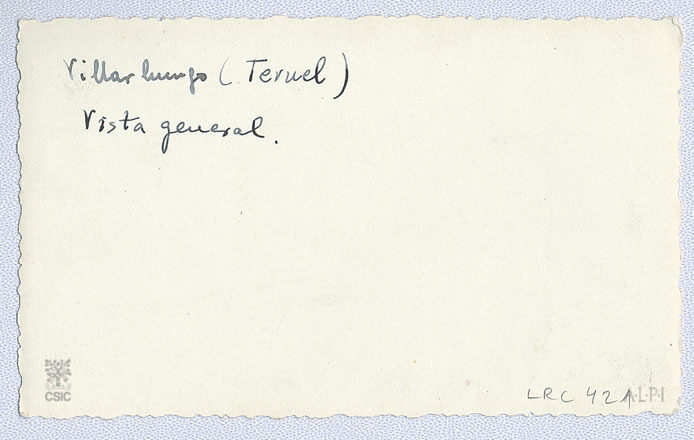 Villarluengo (Teruel)
Vista general.
CSIC
LRC 421
A·L·P·I